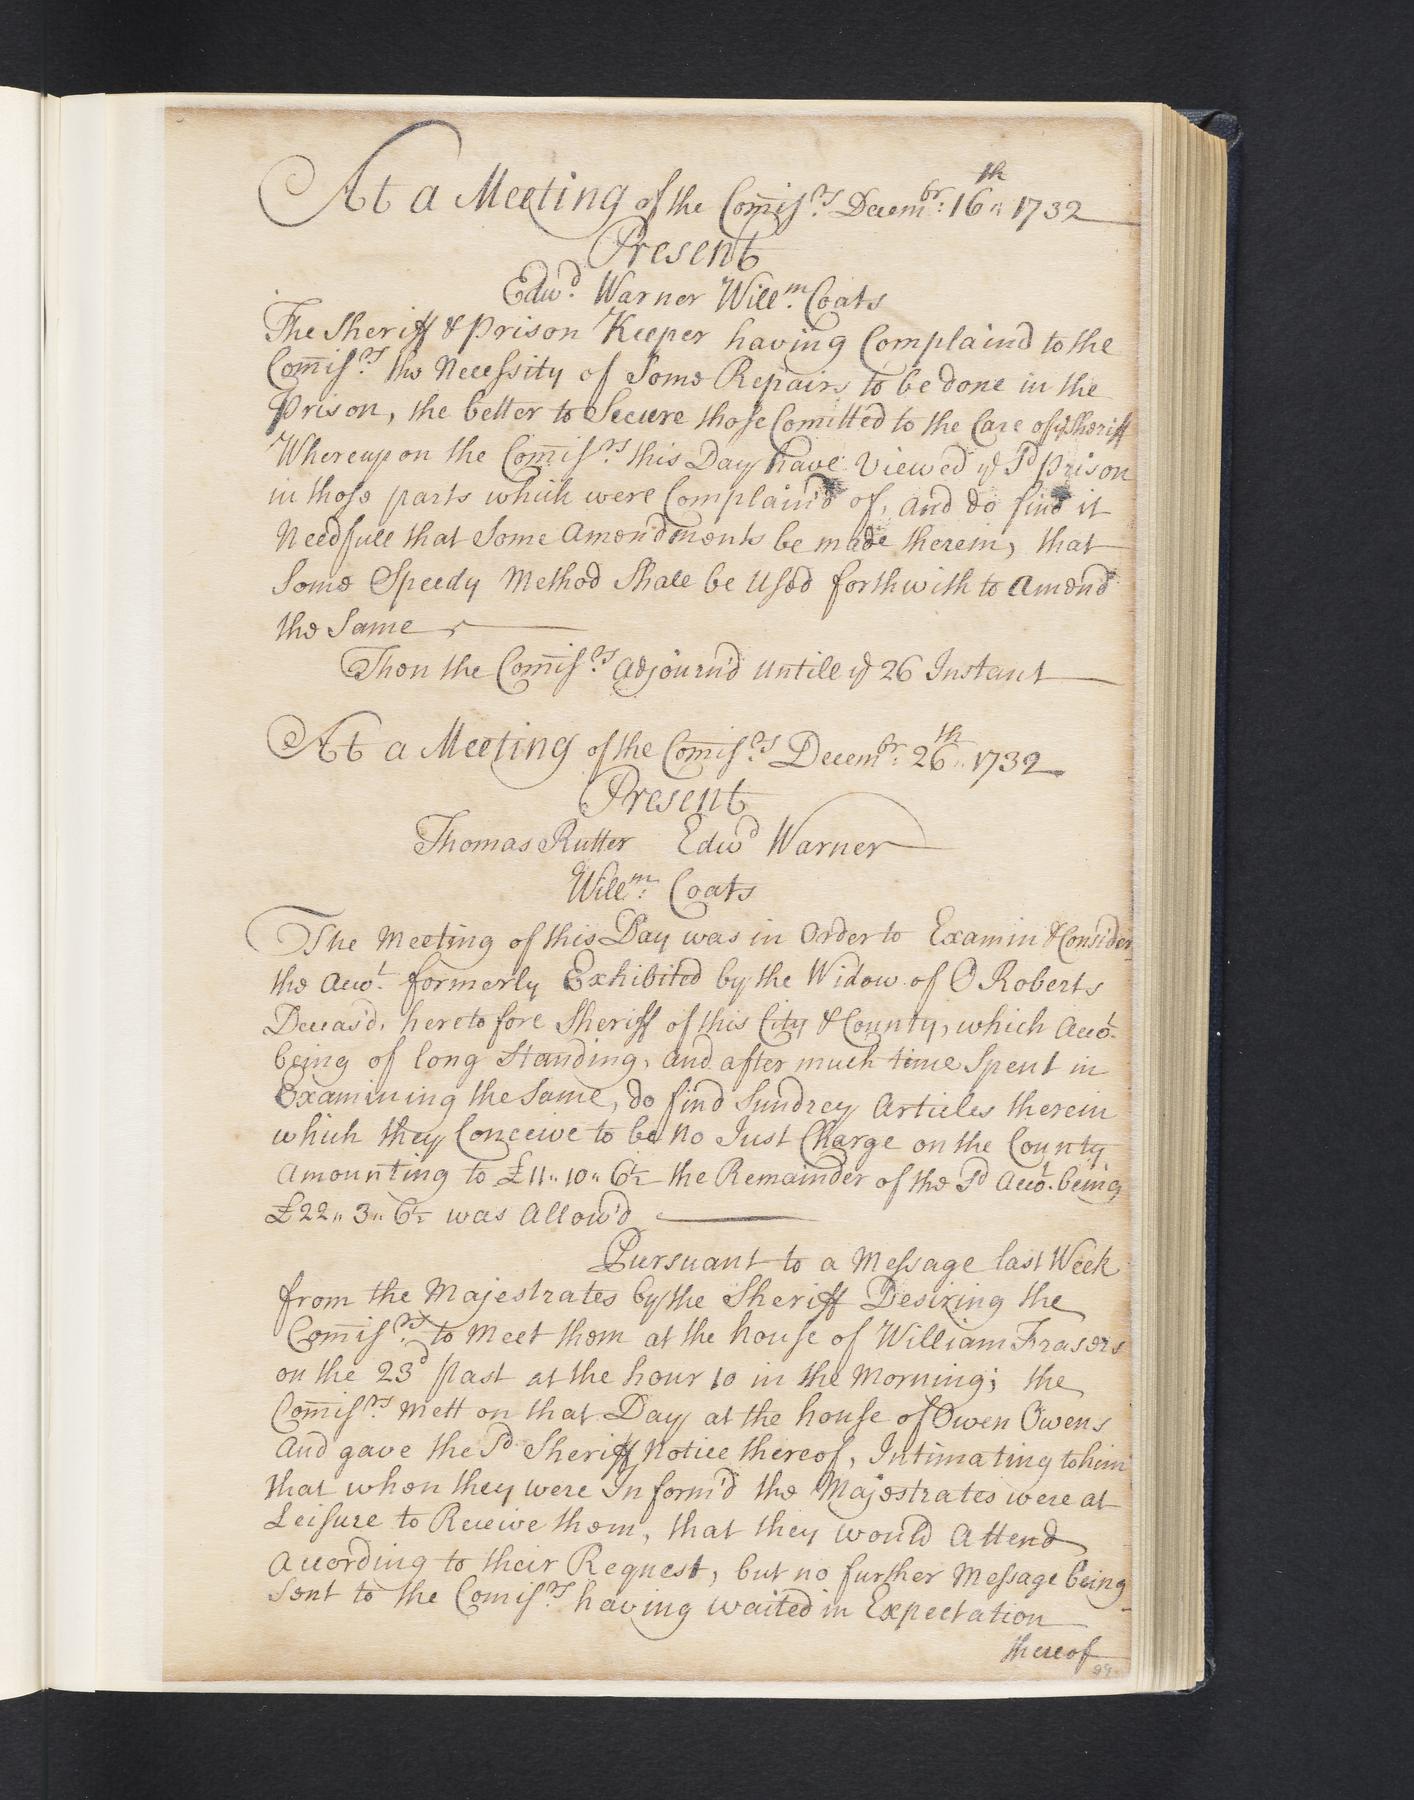 At a Meeting of the Comis.rs Decem.br 16th 1732
Present
Edw.d Warner Will.m Coats
The Sheriff & Prison Keeper having Complaind to the
Comis.rs the Necessity of Some Repairs to be done in the
Prison, the better to Secure those Comitted to the Care of ye Sheriff
Whereupon the Comis.rs this Day have Viewed ye Sd Prison
in those parts which were Complain'd of, and do find it
Needfull that Some Amendments be made therein, that
Some Speedy Method Shall be Used forthwith to Amend
the Same
Then the Comis.rs Adjourn'd Untill ye 26 Instant
At a Meeting of the Comis.rs Decem.br 26th 1732
Present
Thomas Rutter Edwd Warner
Will.m Coats
The Meeting of this Day was in Order to Examin & Consider
the Acco.t formerly Exhibited by the Widow of O Roberts
Deceas'd, heretofore Sheriff of this City & County, which Acco.t
being of long Standing, and after much time Spent in
Examining the Same, do find Sundrey Articles therein
which they Conceive to be no Just Charge on the County
Amounting to £11„ 10„ 6½ the Remainder of the Sd Acco.t being
£22„ 3„ 6½ was Allow'd
Pursuant to a Message last Week
from the Majestrates by the Sheriff Desiring the
Comis.rs to Meet them at the house of William Frasers
on the 23d past at the hour 10 in the Morning; the
Comis.rs Mett on that Day at the house of Owen Owens
And gave the Sd Sheriff Notice thereof, Intimating to him
that when they were Inform'd the Majestrates were at
Leisure to Receive them, that they would Attend
According to their Request, but no further Message being
Sent to the Comis.rs having waited in Expectation
thereof
99